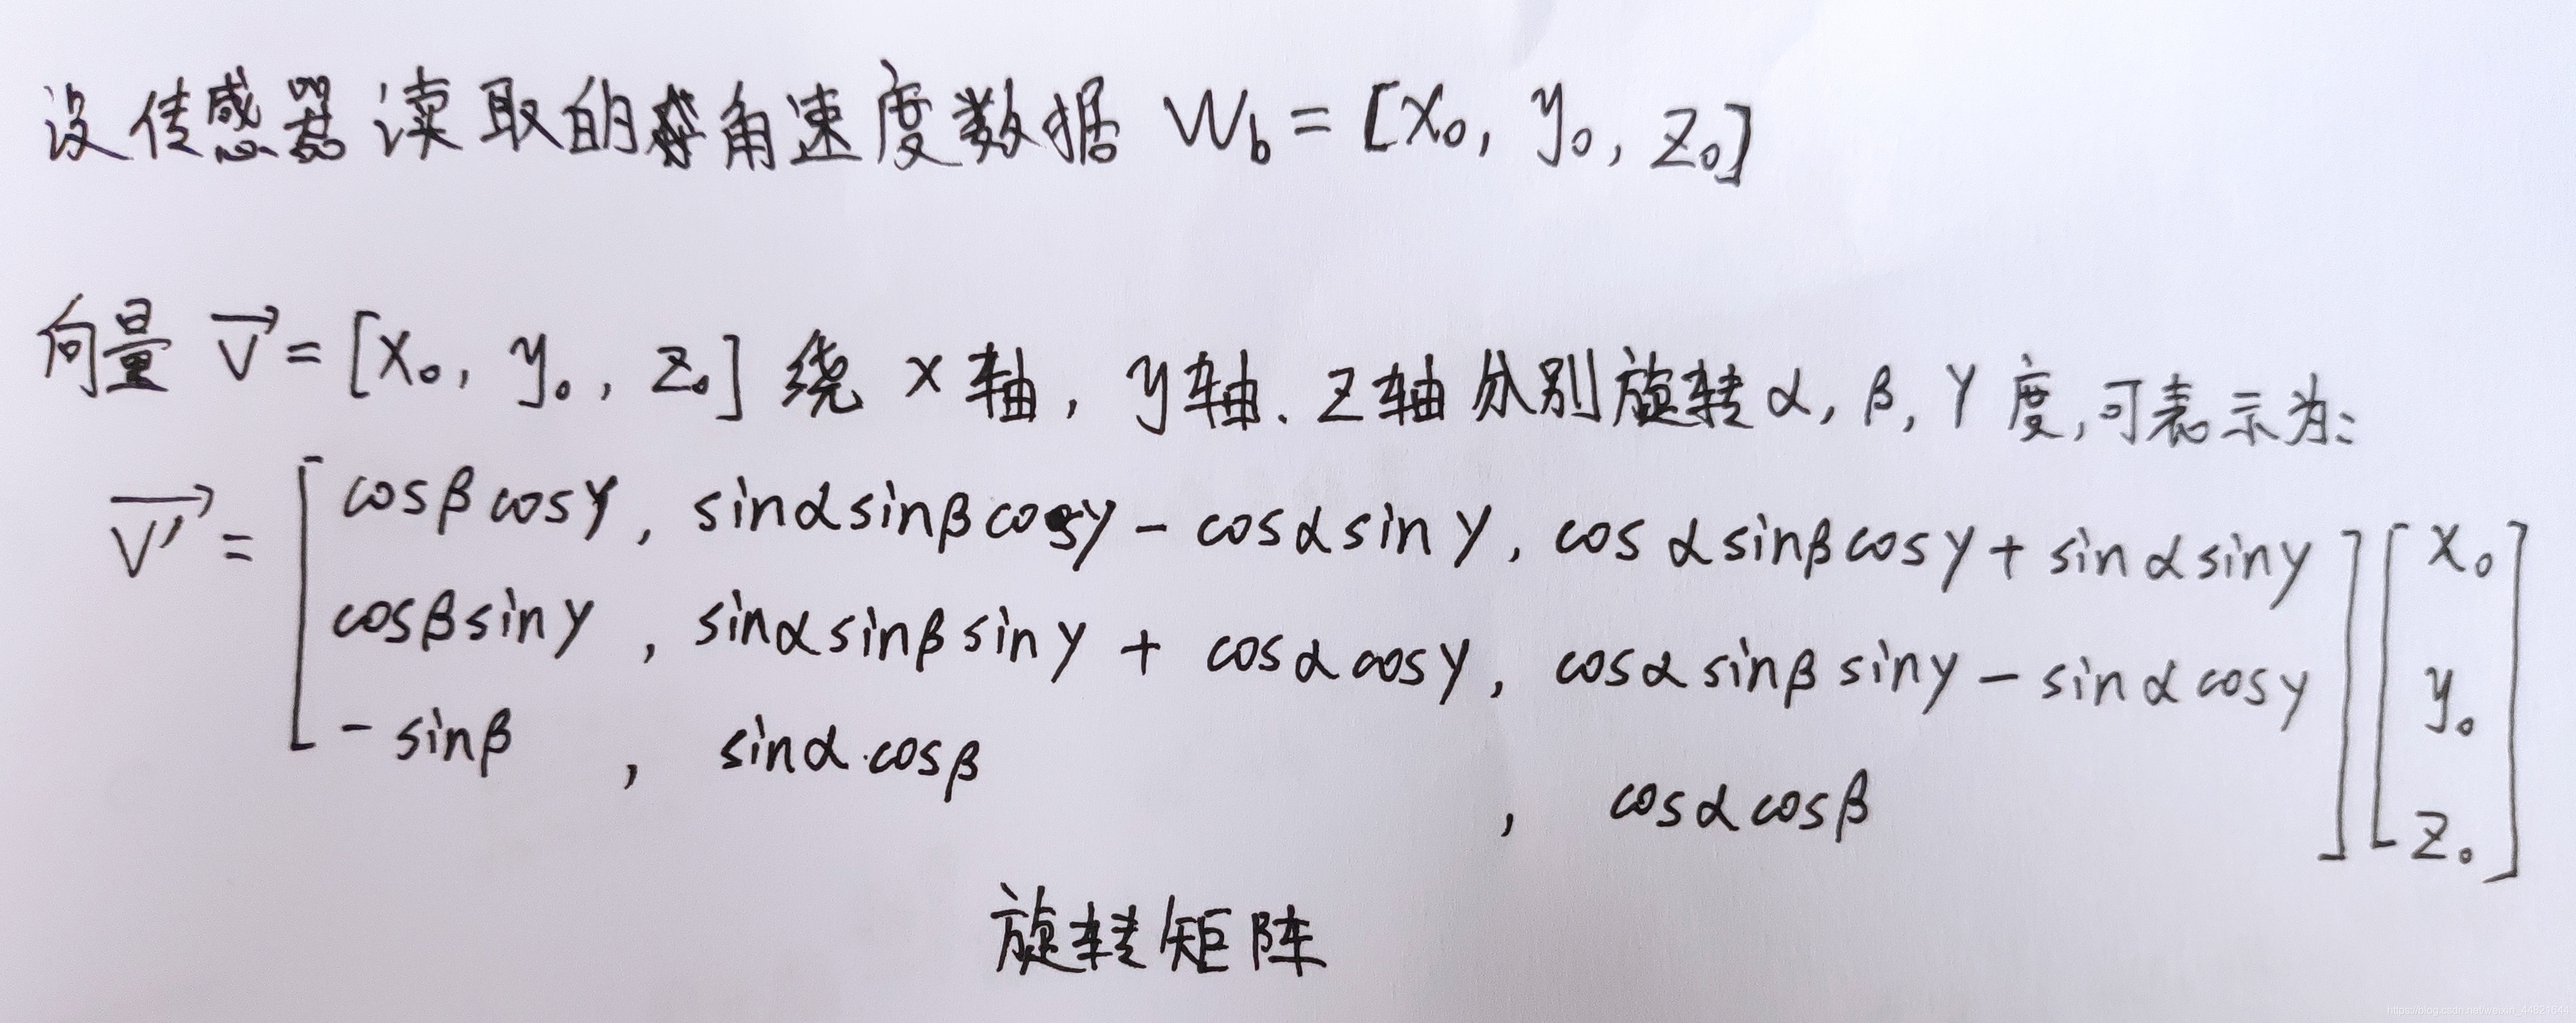 设传感器读取的角速度数据 Wb = [x₀, y₀, z₀]
向量 V⃗ = [x₀, y₀, z₀] 绕 x 轴, y 轴. z 轴分别旋转 α, β, γ 度, 可表示为:
V⃗′ = [cosβcosγ, sinαsinβcosγ - cosαsinγ, cosαsinβcosγ + sinαsinγ] [x₀]
cosβsinγ, sinαsinβsinγ + cosαcosγ, cosαsinβsinγ - sinαcosγ y₀
-sinβ, sinα·cosβ, cosαcosβ z₀
旋转矩阵